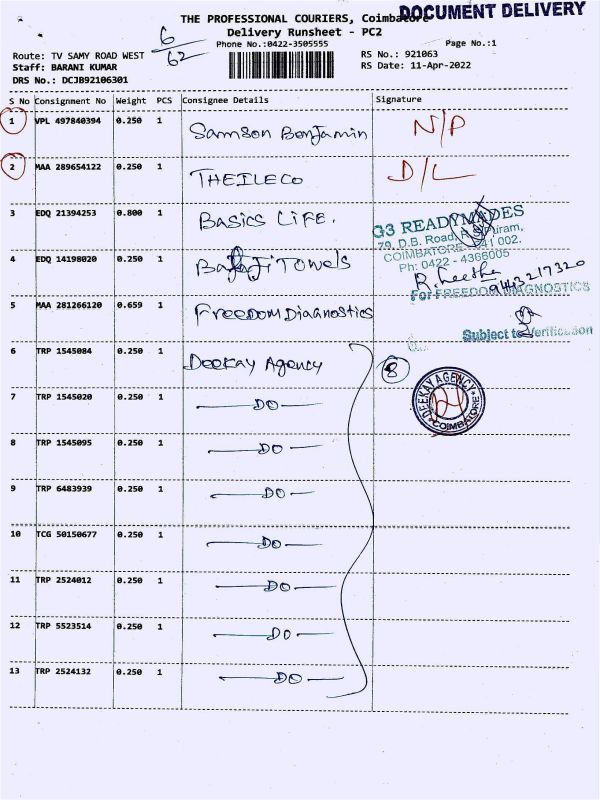 DOCUMENT DELIVERY
THE PROFESSIONAL COURIERS, Coimbatore
Delivery Runsheet - PC2
6/62
Phone No.:0422-3505555
Page No.:1
Route: TV SAMY ROAD WEST
RS No.: 921063
Staff: BARANI KUMAR
RS Date: 11-Apr-2022
DRS No.: DCJB92106301
S No Consignment No Weight PCS Consignee Details Signature
1 VPL 497840394 0.250 1 Samson Benjamin N/P
2 MAA 289654122 0.250 1 THEILECO D/L
3 EDQ 21394253 0.800 1 BASICS LIFE.
G3 READYMADES
79, D.B. Road, R.S. Puram,
COIMBATORE - 641 002.
Ph: 0422 - 4366005
4 EDQ 14198020 0.250 1 Balaji Towels
R. Geetha
9443217320
For FREEDOM DIAGNOSTICS
5 MAA 281266120 0.659 1 Freedom Diagnostics
Subject to Verification
6 TRP 1545084 0.250 1 Deekay Agency 8
DEEKAY AGENCY
COIMBATORE
7 TRP 1545020 0.250 1 —DO—
8 TRP 1545095 0.250 1 —DO—
9 TRP 6483939 0.250 1 —DO—
10 TCG 50150677 0.250 1 —DO—
11 TRP 2524012 0.250 1 —DO—
12 TRP 5523514 0.250 1 —DO—
13 TRP 2524132 0.250 1 —DO—